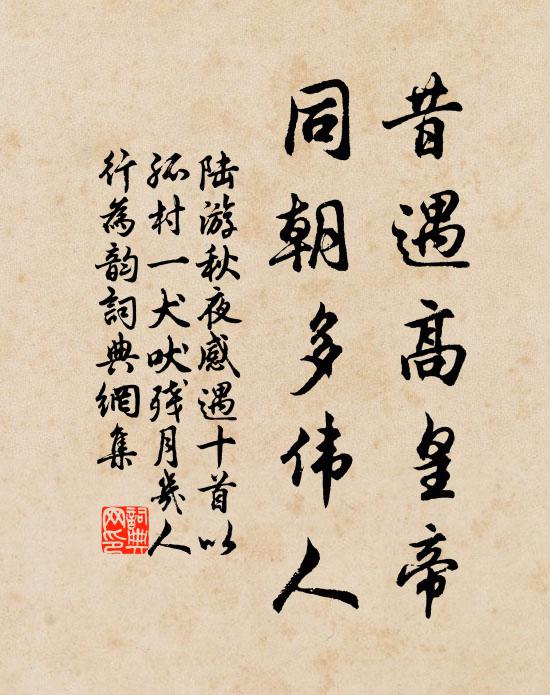 昔遇高皇帝
同朝多伟人
陆游秋夜感遇十首以
孤村一犬吠残月几人
行為韵詞典網集
詞典
网印